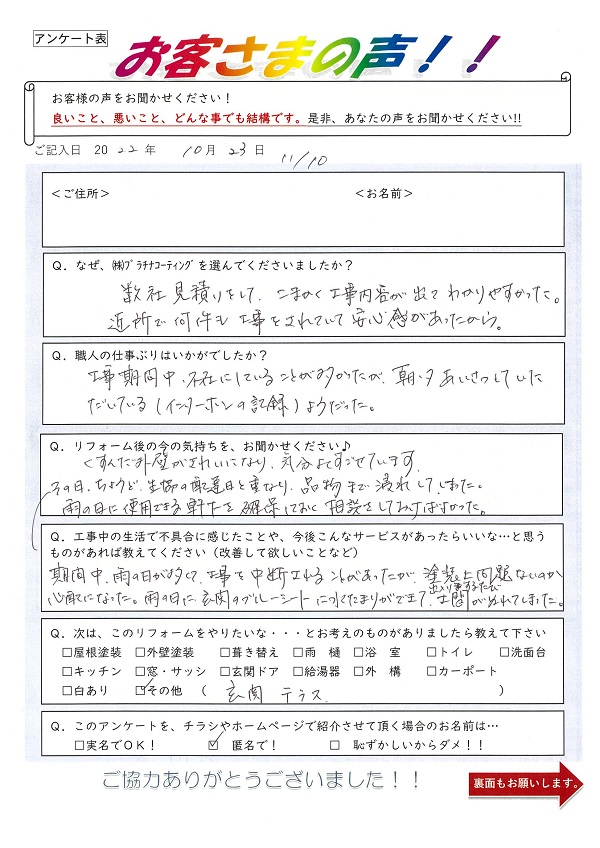 アンケート表
お客さまの声！！
お客様の声をお聞かせください！
良いこと、悪いこと、どんな事でも結構です。是非、あなたの声をお聞かせください!!
ご記入日 2022年 10月23日
11/10
＜ご住所＞ ＜お名前＞
Q．なぜ、㈱ﾌﾟﾗﾁﾅｺｰﾃｨﾝｸﾞを選んでくださいましたか？
数社見積りをして、こまかく工事内容が出てわかりやすかった。
近所で何件も工事をされていて安心感があったから。
Q．職人の仕事ぶりはいかがでしたか？
工事期間中、不在にしていることが多かったが、朝、夕あいさつしていた
だいている（インターホンの記録）ようだった。
Q．リフォーム後の今の気持ちを、お聞かせください♪
くすんだ外壁がきれいになり、気分よくすごせています。
その日、ちょうど、生協の配達日と重なり、品物まで濡れてしまいました。
雨の日に使用できる軒下を確保しておく相談をしておけばよかった。
Q．工事中の生活で不具合に感じたことや、今後こんなサービスがあったらいいな…と思う
ものがあれば教えてください（改善して欲しいことなど）
期間中、雨の日が多くて、工事を中断されることがあったが、塗装上問題ないのか
心配になった。雨の日に玄関のブルーシートに水たまりができて、出入りするたびに土間がぬれてしまった。
Q．次は、このリフォームをやりたいな・・・とお考えのものがありましたら教えて下さい
□屋根塗装 □外壁塗装 □葺き替え □雨　樋 □浴　室 □トイレ □洗面台
□キッチン □窓・サッシ □玄関ドア □給湯器 □外　構 □カーポート
□白あり ☑その他（ 玄関 テラス ）
Q．このアンケートを、チラシやホームページで紹介させて頂く場合のお名前は…
□実名でOK！ ☑ 匿名で！ □ 恥ずかしいからダメ！！
ご協力ありがとうございました！！
裏面もお願いします。